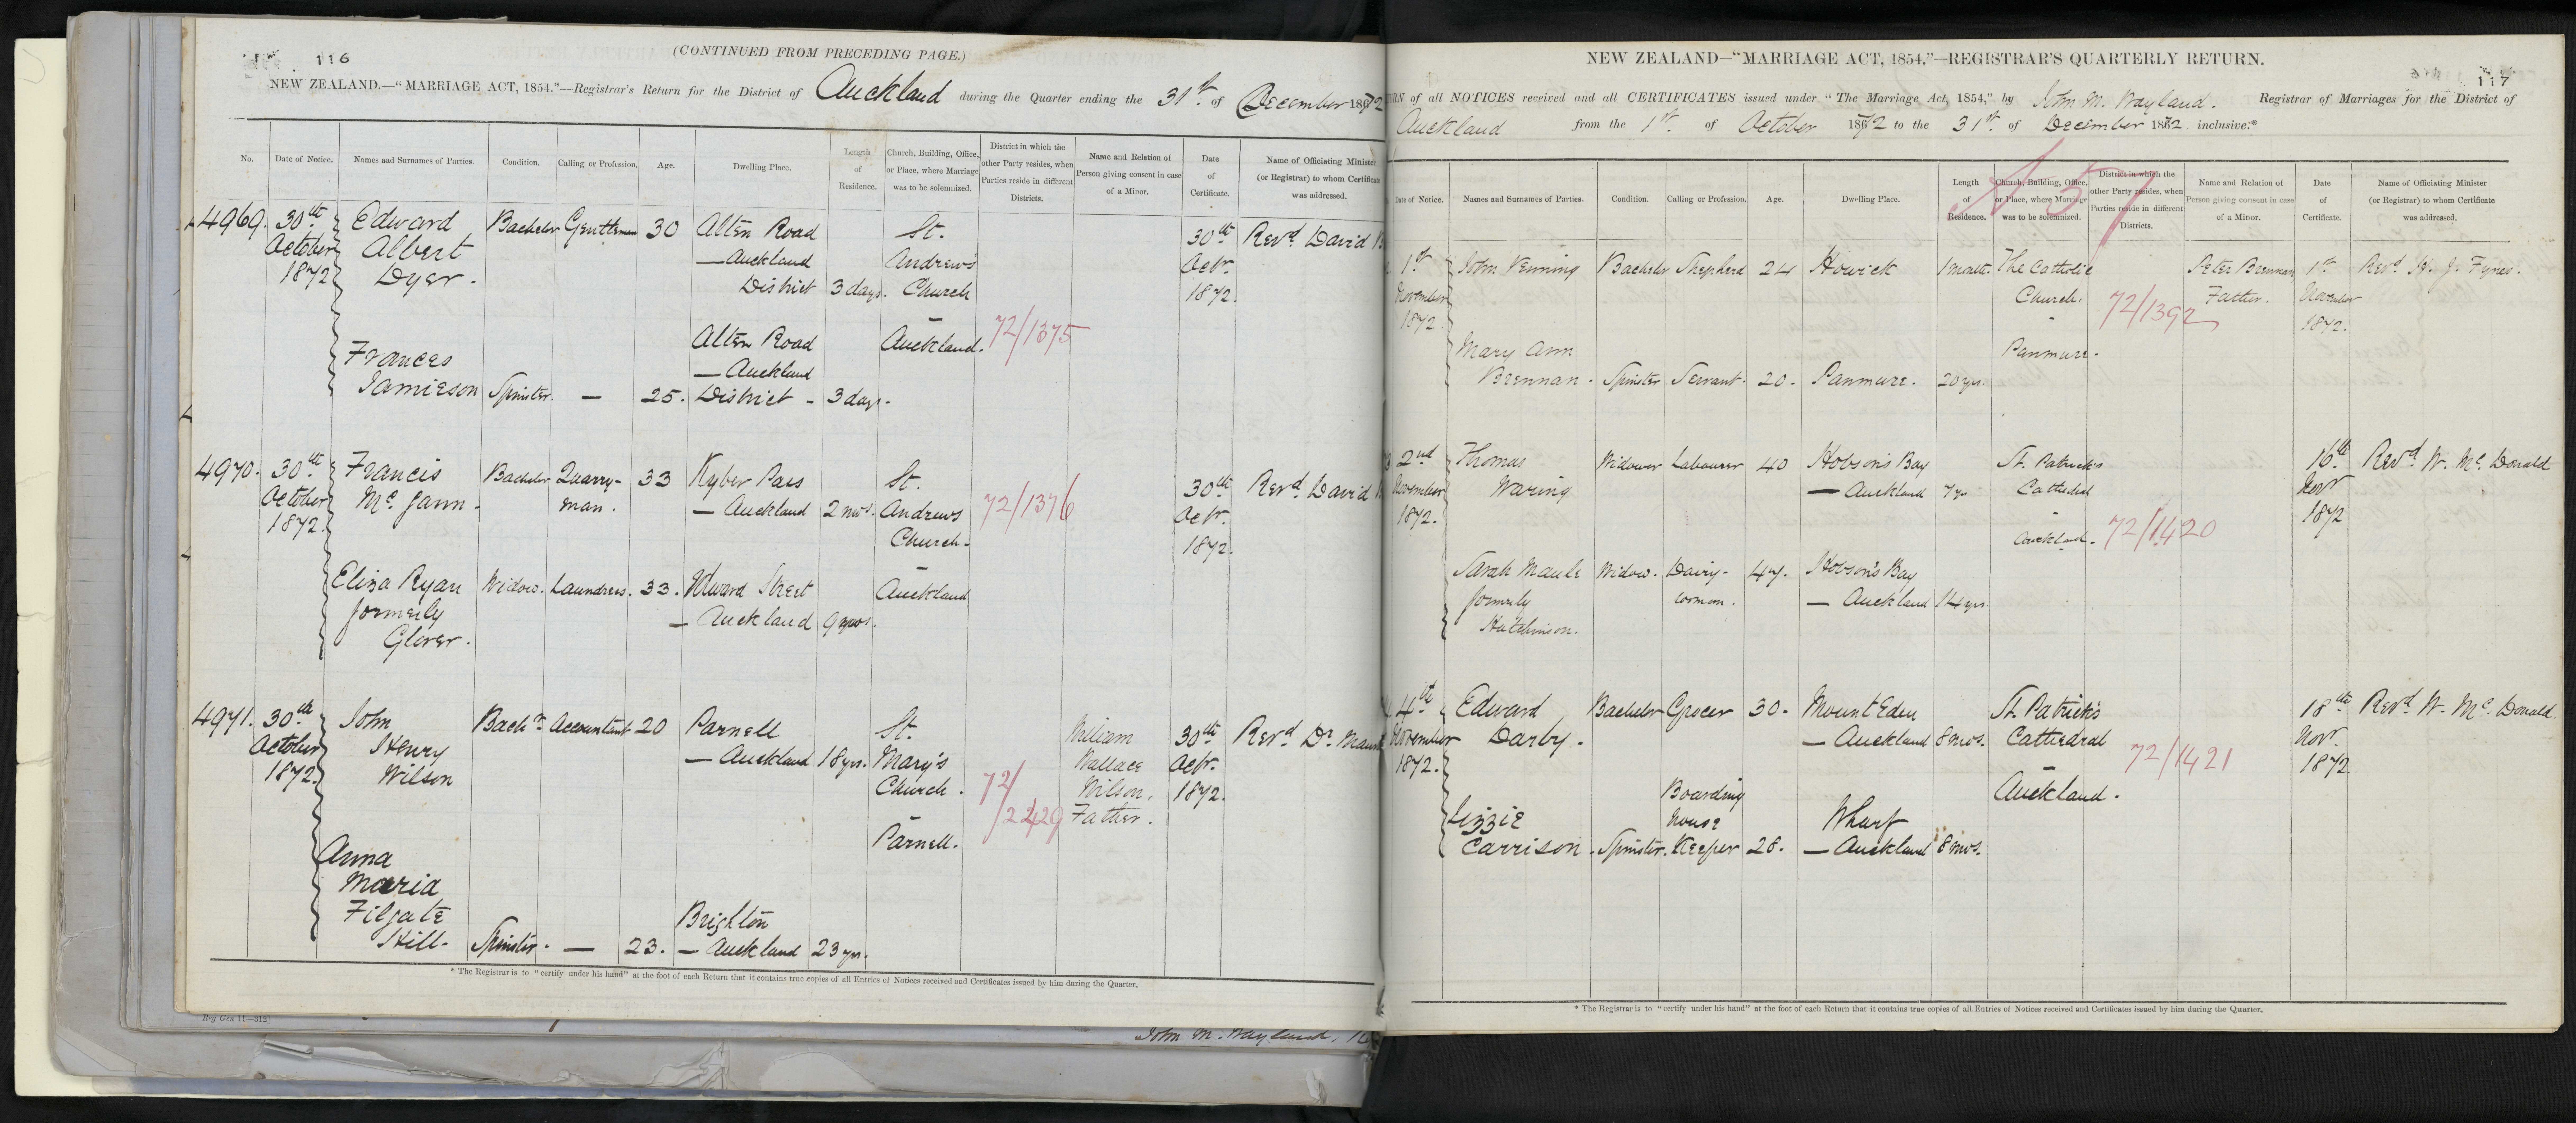 116
(CONTINUED FROM PRECEDING PAGE.)
NEW ZEALAND.—"MARRIAGE ACT, 1854."—Registrar's Return for the District of Auckland during the Quarter ending the 31st of December 1872
No.
Date of Notice.
Names and Surnames of Parties.
Condition.
Calling or Profession.
Age.
Dwelling Place.
Length of Residence.
Church, Building, Office, or Place, where Marriage was to be solemnized.
District in which the other Party resides, when Parties reside in different Districts.
Name and Relation of Person giving consent in case of a Minor.
Date of Certificate.
Name of Officiating Minister (or Registrar) to whom Certificate was addressed.
4969. 30th Edward Bachelor Gentleman 30 Alten Road St. 30th Revd. David
October Albert — Auckland Andrew's Octr.
1872 Dyer. District 3 days. Church 1872.
Alten Road Auckland. 72/1375
Frances — Auckland
Jamieson Spinster. — 25. District - 3 days.
4970. 30th Francis Bachelor Quarry- 33 Kyber Pass St. 30th Revd. David
October Mc. Gann. man. — Auckland 2 mos. Andrews 72/1376 Octr.
1872. Church. 1872.
Eliza Ryan Widow. Laundress. 33. Edward Street Auckland
formerly — Auckland 9 mos.
Glover.
4971. 30th John Bachr. Accountant 20 Parnell St. William 30th Revd. Dr.
October Henry — Auckland 18 yrs. Mary's Wallace Octr.
1872. Wilson Church. 72/ Wilson. 1872.
/2429 Father.
Parnell.
Anna
Maria
Filgate Brighton
Hill. Spinster. — 23. — Auckland 23 yrs.
* The Registrar is to "certify under his hand" at the foot of each Return that it contains true copies of all Entries of Notices received and Certificates issued by him during the Quarter.
Reg Gen 11—312]
John M. Wayland.
117
NEW ZEALAND—"MARRIAGE ACT, 1854."—REGISTRAR'S QUARTERLY RETURN.
of all NOTICES received and all CERTIFICATES issued under "The Marriage Act, 1854," by John M. Wayland. Registrar of Marriages for the District of
Auckland from the 1st. of October 1872 to the 31st. of December 1872. inclusive.*
Date of Notice.
Names and Surnames of Parties.
Condition.
Calling or Profession.
Age.
Dwelling Place.
Length of Residence.
Church, Building, Office, or Place, where Marriage was to be solemnized.
District in which the other Party resides, when Parties reside in different Districts.
Name and Relation of Person giving consent in case of a Minor.
Date of Certificate.
Name of Officiating Minister (or Registrar) to whom Certificate was addressed.
1st John Venning Bachelor Shepherd 24 Howick 1 month. The Catholic Peter Brennan 1st Revd. H. J. Fynes.
November Church. 72/1392 Father. November
1872. 1872.
Mary Ann Panmure.
Brennan. Spinster Servant. 20. Panmure. 20 yrs.
2nd Thomas Widower Labourer 40 Hobson's Bay St. Patrick's 16th Revd. W. Mc. Donald
November Waring — Auckland 7 yrs Cathedral Novr
1872. Auckland. 72/1420 1872
Sarah Maule Widow. Dairy- 47. Hobson's Bay
formerly woman. — Auckland 14 yrs.
Hutchinson.
4th Edward Bachelor Grocer 30. Mount Eden St. Patrick's 18th Revd. W. Mc. Donald.
November Darby. — Auckland 8 mos. Cathedral 72/1421 Novr.
1872. 1872
Boarding Auckland.
Lizzie House Wharf
Carrison. Spinster. Keeper 28. — Auckland 8 mos.
* The Registrar is to "certify under his hand" at the foot of each Return that it contains true copies of all Entries of Notices received and Certificates issued by him during the Quarter.